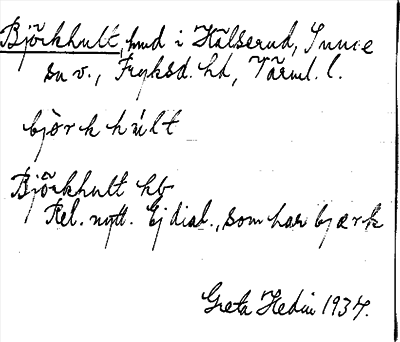 Björkhult, hmd i Hälserud, Sunne
sn v., Fryksd. hd, Värml. l.
björkhult
Björkhult hb
Rel. nytt. Ej dial., som har bjærk
Greta Hedin 1934.